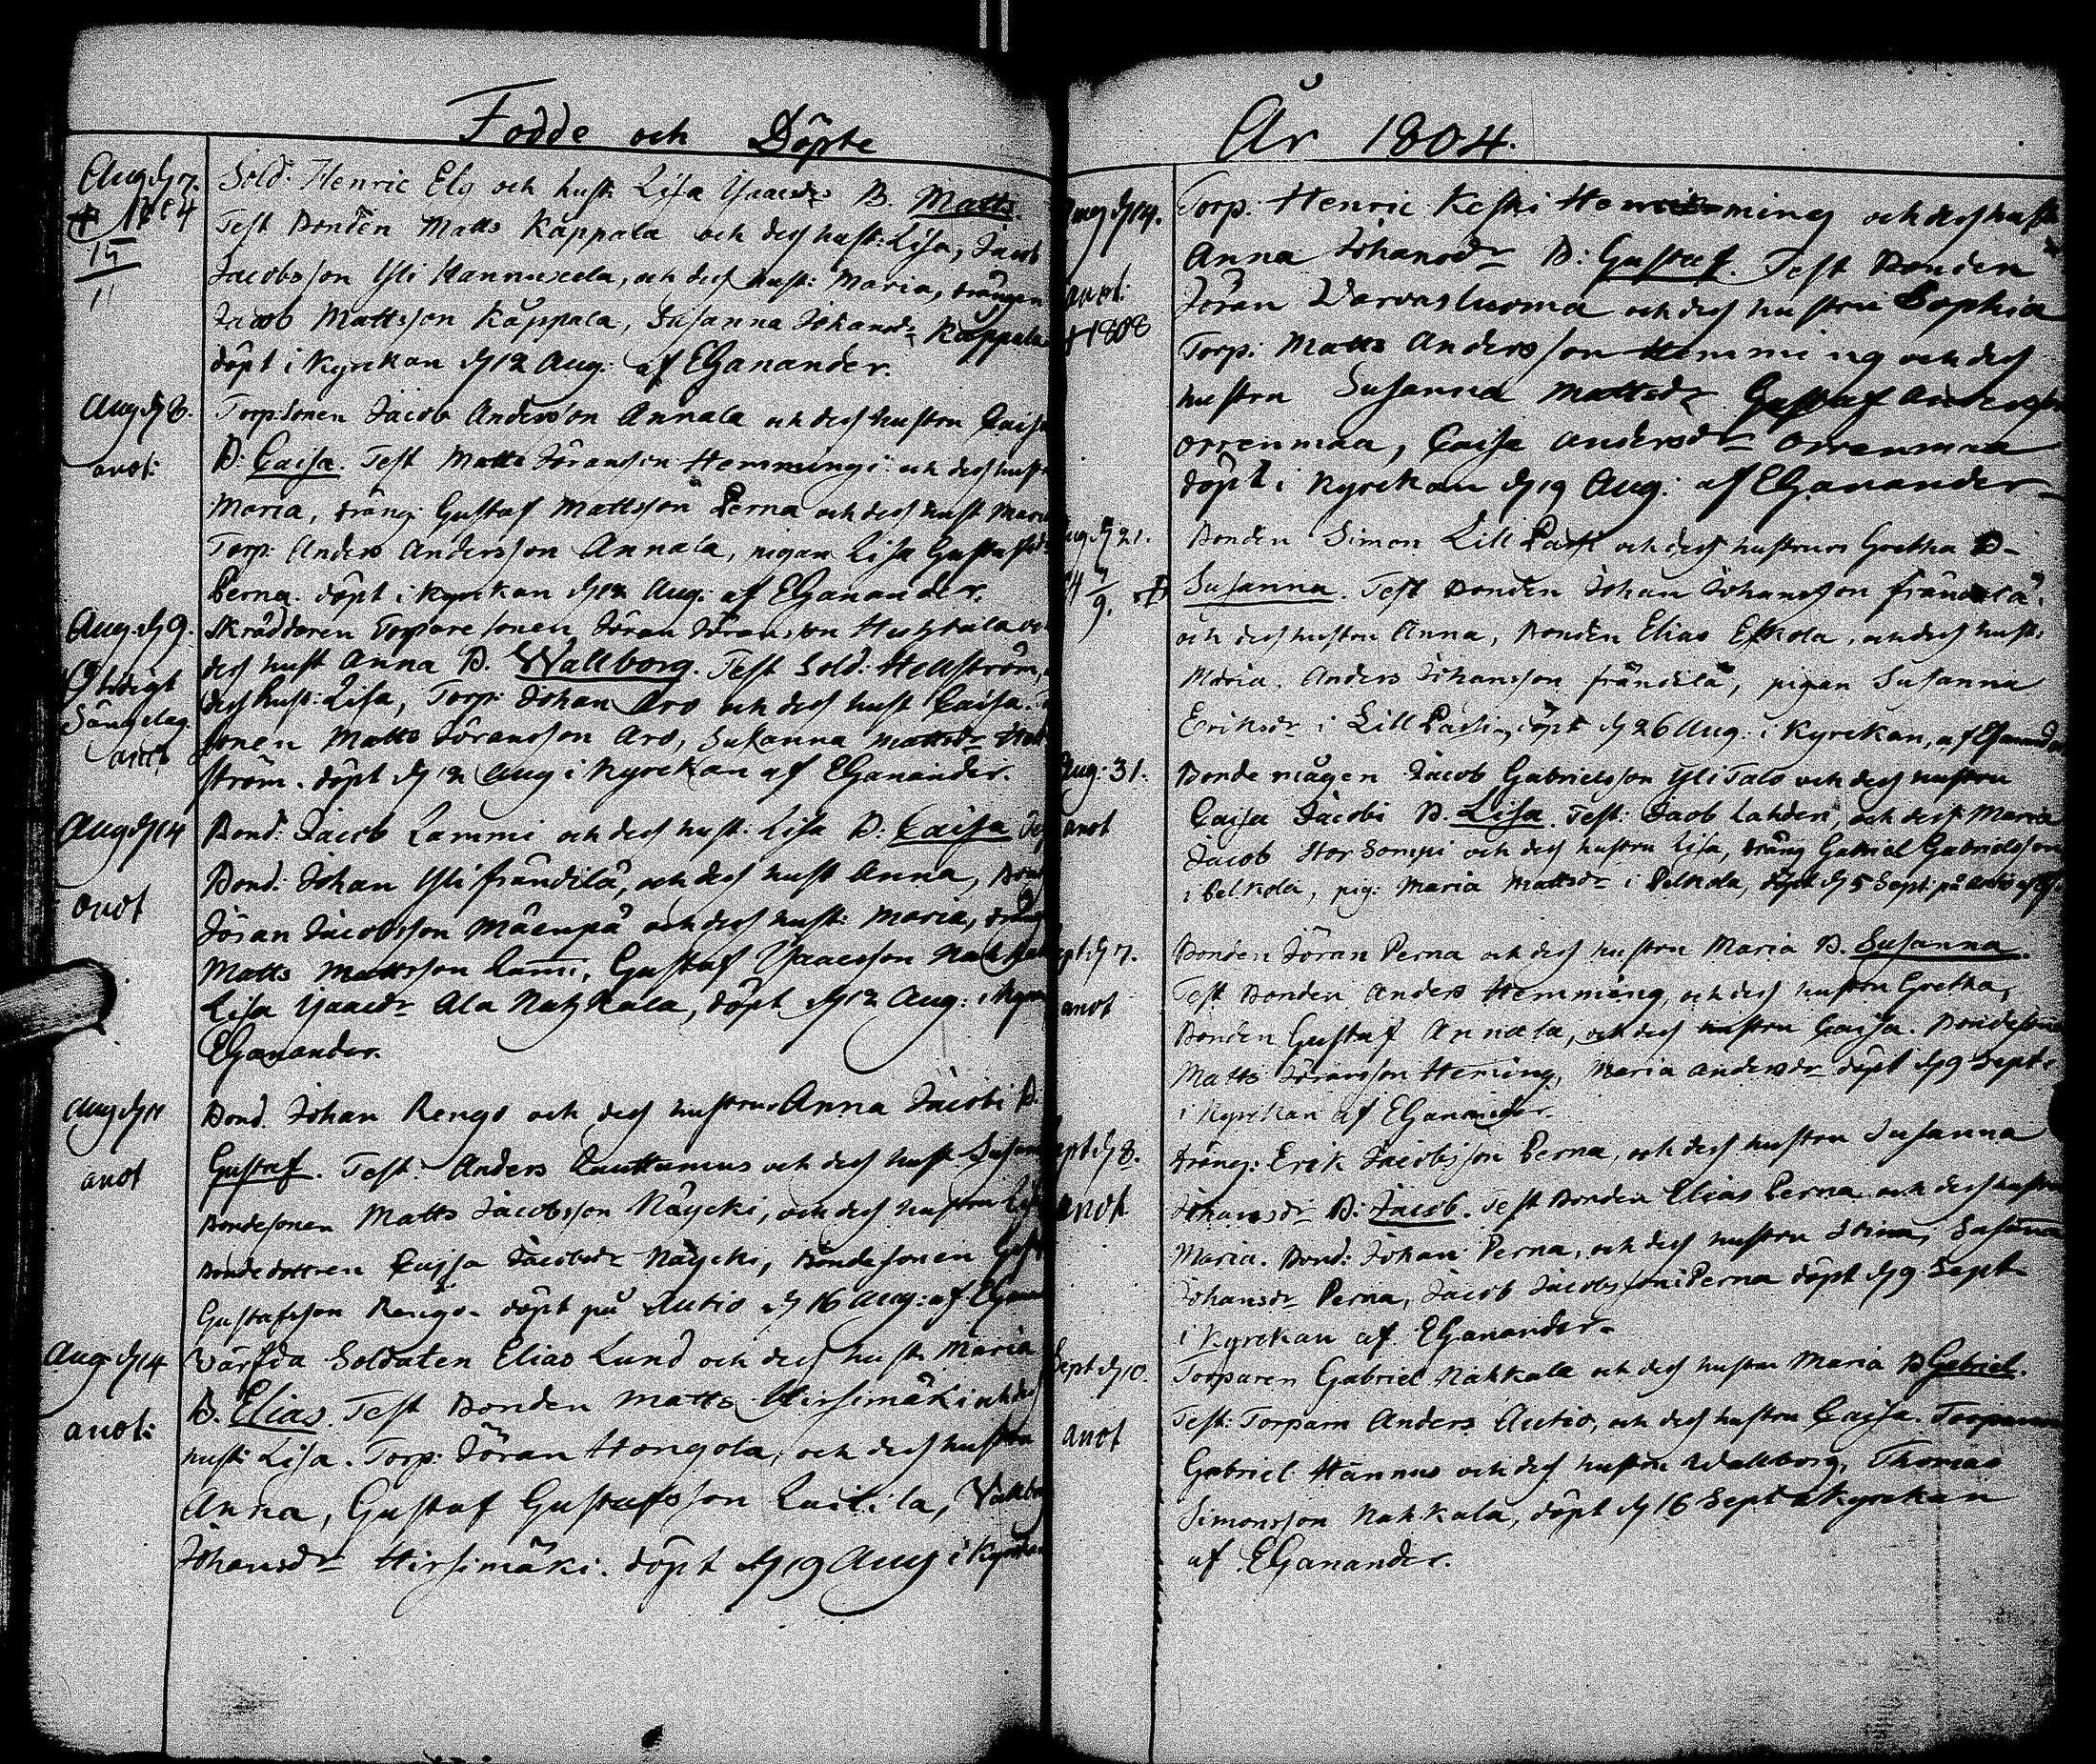 Födde och Döpte
Aug. d. 7.
+ 1804
15
11
Sold. Henric Elg och hust. Lisa Isaacsdr B. Matts.
Test Bonden Matts Kåppala och dess hust: Lisa, Jacob
Jacobsson Yli Hannuxela, och dess hust: Maria, drängen
Jacob Mattsson Kåppala, Susanna Johansdr Kåppala
döpt i Kyrckan d. 12 Aug. af EGanander.
Aug. d. 8.
anot:
Torp: Sonen Jacob Andersson Annala och dess hustru Caisa
B. Caisa. Test Matts Jöransson Hemmingi och dess hust
Maria, dräng: Gustaf Mattsson Perna och dess hust Maria
Torp: Anders Andersson Annala, pigan Lisa Gustafsdr
Perna. döpt i kyrckan d. 12 Aug. af EGanander.
Aug. d. 9.
Otidigt
Sängelag.
anot
Skräddaren Torpare Sonen Jöran Jöransson Huhtala och
dess hust Anna B. Wallborg. Test Sold: Hellström,
dess hust: Lisa, Torp: Johan Aro och dess hust Caisa.
Sonen Matts Jöransson Aro, Susanna Mattsdr
ström. döpt d. 12 Aug i Kyrckan af EGanander.
Aug d. 14
anot
Bond: Jacob Lammi och dess hust. Lisa B. Caisa Test
Bond: Johan Yli frändilä, och dess hust Anna, Bond
Jöran Jacobsson Mäenpä och dess hust: Maria, dräng
Matts Mattsson Lami, Gustaf Isaacsson
Lisa Isaacdr Ala Nahkala, döpt d. 12 Aug: i Kyrck
EGanander.
Aug d. 11
anot
Bond. Johan Rengo och dess hustru Anna Jacobi B.
Gustaf. Test. Anders Lauttamus och dess hust. Susanna
Bondesonen Matts Jacobsson Näycki, och dess hustru Lisa
Bonde dottren Caisa Jacobsdr Näycki, Bonde sonen Gust
Gustafsson Rengo. döpt på Autio d. 16 Aug: af EGanan
Aug d. 14
anot:
Värfda Soldaten Elias Lund och dess hust: Maria
B. Elias. Test Bonden Matts Hirsimäki och dess
hust: Lisa. Torp: Jöran Hongola, och dess hustru
Anna, Gustaf Gustafsson Luikila, Vallbo
Johansdr Hirsimäki. döpt d. 19 Aug i Kyrckan
År 1804.
Aug d. 14.
anot:
+ 1808
Torp: Henric Keski Hemming och dess hustru
Anna Johansdr B: Gustaf. Test Bonden
Jöran Varvasluoma och dess hustru Sophia
Torp: Matts Andersson Hemming och dess
hustru Susanna Mattsdr Gustaf Andersson
Orrenmaa, Caisa Andersdr Orrenmaa
döpt i Kyrckan d. 19 Aug: af EGanander
Aug d. 21.
4 7/9. +
Bonden Simon Lill Pasi och dess hustru Gretha B-
Susanna. Test Bonden Johan Johansson frändilä.
och dess hustru Anna, Bonden Elias Eskola, och dess hust:
Maria. Anders Johansson frändilä, pigan Susanna
Eriksdr i Lill Pasi, döpt d. 26 Aug. i Kyrckan, af EGanander
Aug: 31.
anot
Bonde mågen Jacob Gabrielsson Yli Talo och dess hustru
Caisa Jacobi B. Lisa. Test: Jacob Lahden, och dess Maria
Jacob Stor Sompi och dess hustru Lisa, dräng Gabriel Gabrielsson
i Pelkola, pig: Maria Mattsdr i Pelkola, döpt d. 5 Sept: på Autio af EG
Sept: d. 7.
anot
Bonden Jöran Perna och dess hustru Maria B. Susanna.
Test Bonden Anders Hemming, och dess hustru Gretha,
Bonden Gustaf Annala, och dess hustru Caisa. Bondesonen
Matts Jöransson Heming, Maria Andersdr döpt d. 9 Sept:
i Kyrckan af EGanander.
Sept d. 8.
anot
dräng: Erik Jacobsson Perna, och dess hustru Susanna
Johansdr B: Jacob. Test Bonden Elias Perna och dess hustru
Maria. Bond: Johan Perna, och dess hustru Stina, Susanna
Johansdr Perna, Jacob Jacobsson i Perna döpt d. 9 Sept
i Kyrckan af EGanander.
Sept d. 10.
anot
Torparen Gabriel Nahkala och dess hustru Maria B Gabriel.
Test: Torparn Anders Autio, och dess hustru Caisa. Torparen
Gabriel Hannus och dess hustru Wallborg, Thomas
Simonsson Nahkala, döpt d. 16 Sept i Kyrckan
af EGanander.